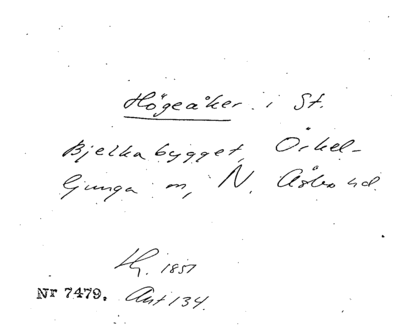 Högeåker i St.
Bjelkabygget, Örkel-
ljunga sn, N. Åsbo hd.
Hg. 1857
Nr 7479. Ant 134.